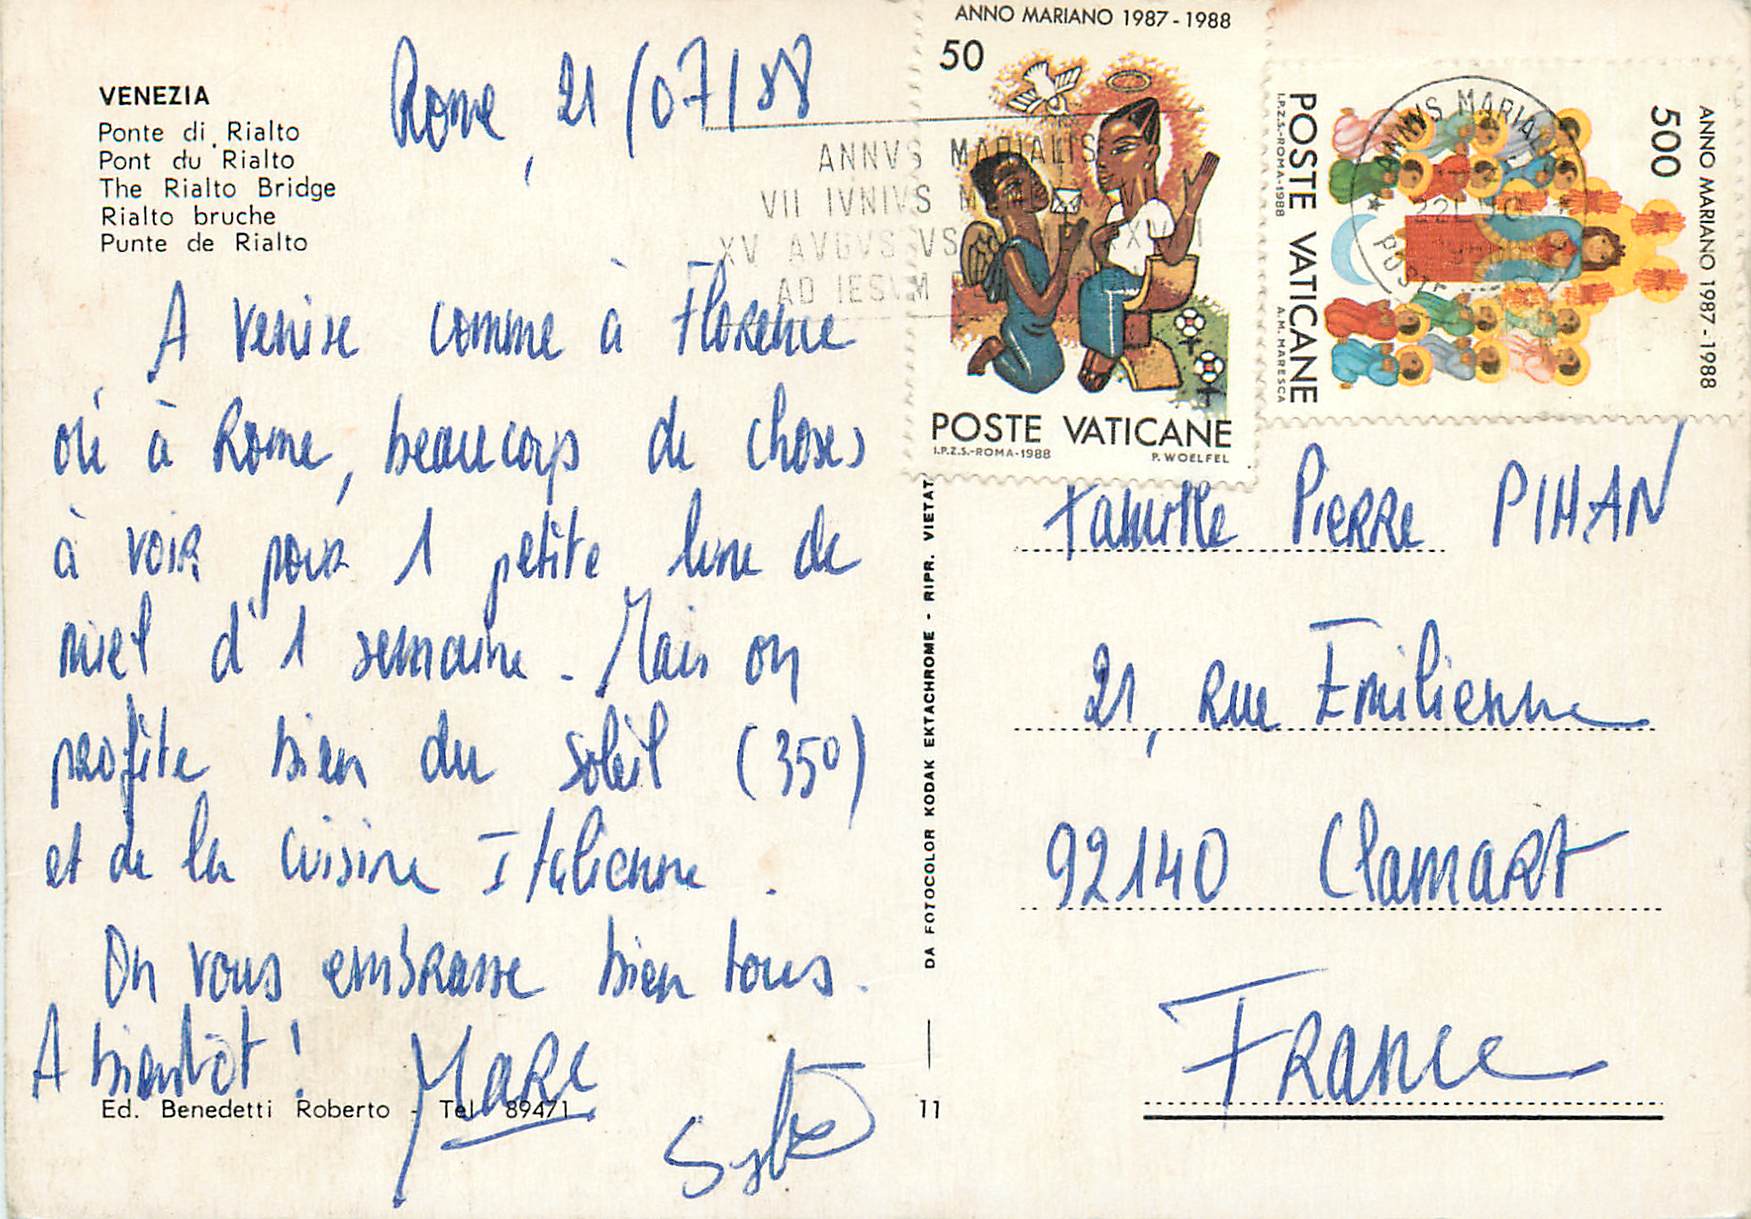 VENEZIA
Ponte di Rialto
Pont du Rialto
The Rialto Bridge
Rialto bruche
Punte de Rialto
Rome, 21/07/88
A Venise comme à Florence
ou à Rome, beaucoup de choses
à voir pour 1 petite lune de
miel d'1 semaine. Mais on
profite bien du soleil (35°)
et de la cuisine Italienne.
On vous embrasse bien tous.
A bientôt !
Marc
Ed. Benedetti Roberto - Tel 89471
11
DA FOTOCOLOR KODAK EKTACHROME - RIPR. VIETAT
ANNVS MARIALIS
VII IVNIVS M
XV AVGVSVS
AD IESVM
ANNO MARIANO 1987-1988
50
POSTE VATICANE
I.P.Z.S.-ROMA-1988
P. WOELFEL
ANNO MARIANO 1987-1988
500
POSTE VATICANE
I.P.Z.S.-ROMA-1988
A.M. MARESCA
ANNVS MARIAL
POSTE
Famille Pierre PIHAN
21, rue Emilienne
92140 Clamart
France